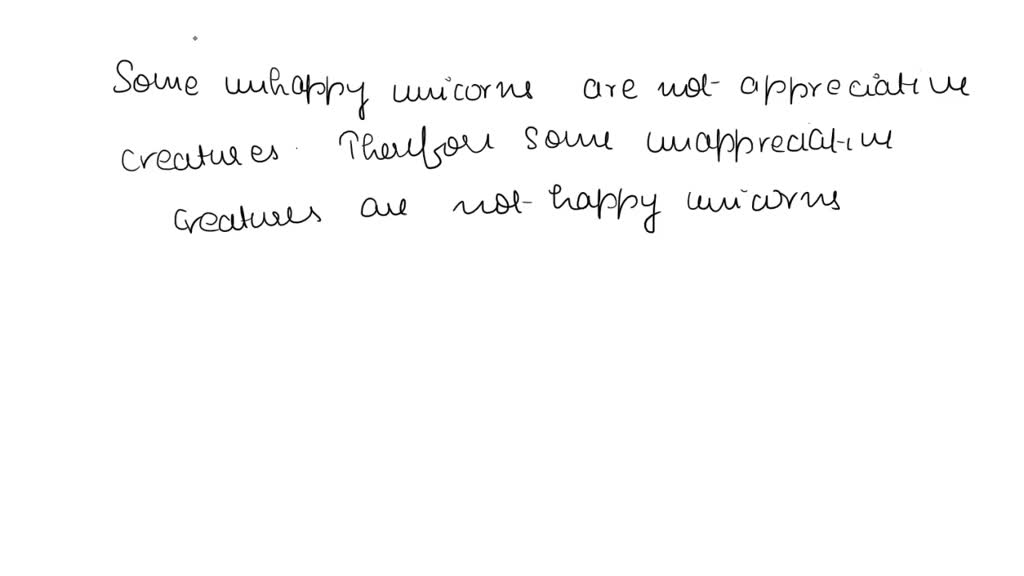 Some unhappy unicorns are not appreciative
creatures. Therefore some unappreciative
creatures are not happy unicorns